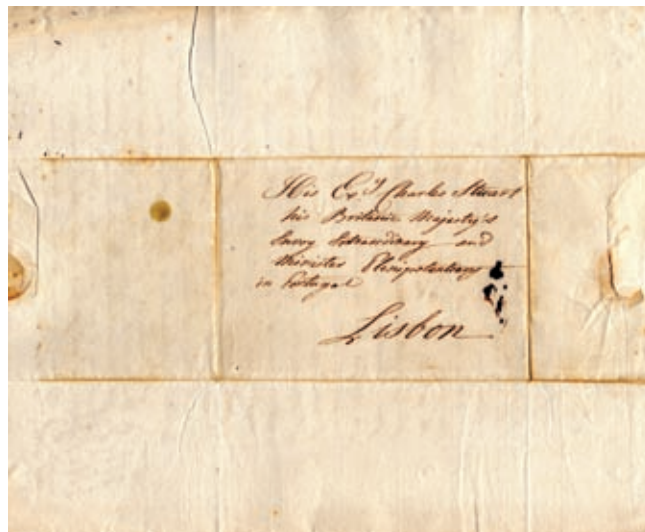 His Exy Charles Stuart
his Britanic Majesty's
Envoy Extraordinary and
Minister Plenipotentiary
in Portugal
Lisbon